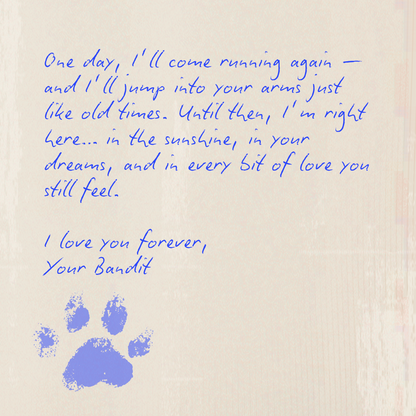 One day, I'll come running again —
and I'll jump into your arms just
like old times. Until then, I'm right
here... in the sunshine, in your
dreams, and in every bit of love you
still feel.
I love you forever,
Your Bandit